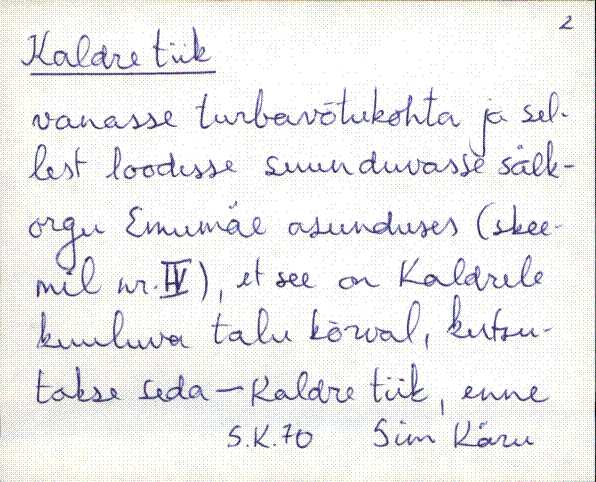 2
Kaldre tiik
vanasse turbavõtukohta ja sel-
lest loodesse suunduvasse sälk-
orgu Emumäe asunduses (skee-
mil nr. IV), et see on Kaldrele
kuuluva talu kõrval, kutsu-
takse seda – Kaldre tiik, enne
S.K. 70 Sim Käru